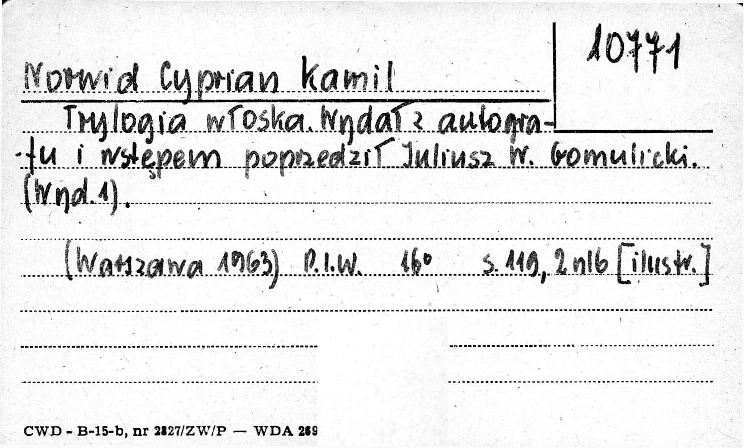 10771
Norwid Cyprian Kamil
Trylogia włoska. Wydał z autogra-
-fu i wstępem poprzedził Juliusz W. Gomulicki.
(Wyd. 1).
(Warszawa 1963) P.I.W. 16° s. 119, 2 nlb [ilustr.]
CWD - B-15-b, nr 2827/ZW/P — WDA 269